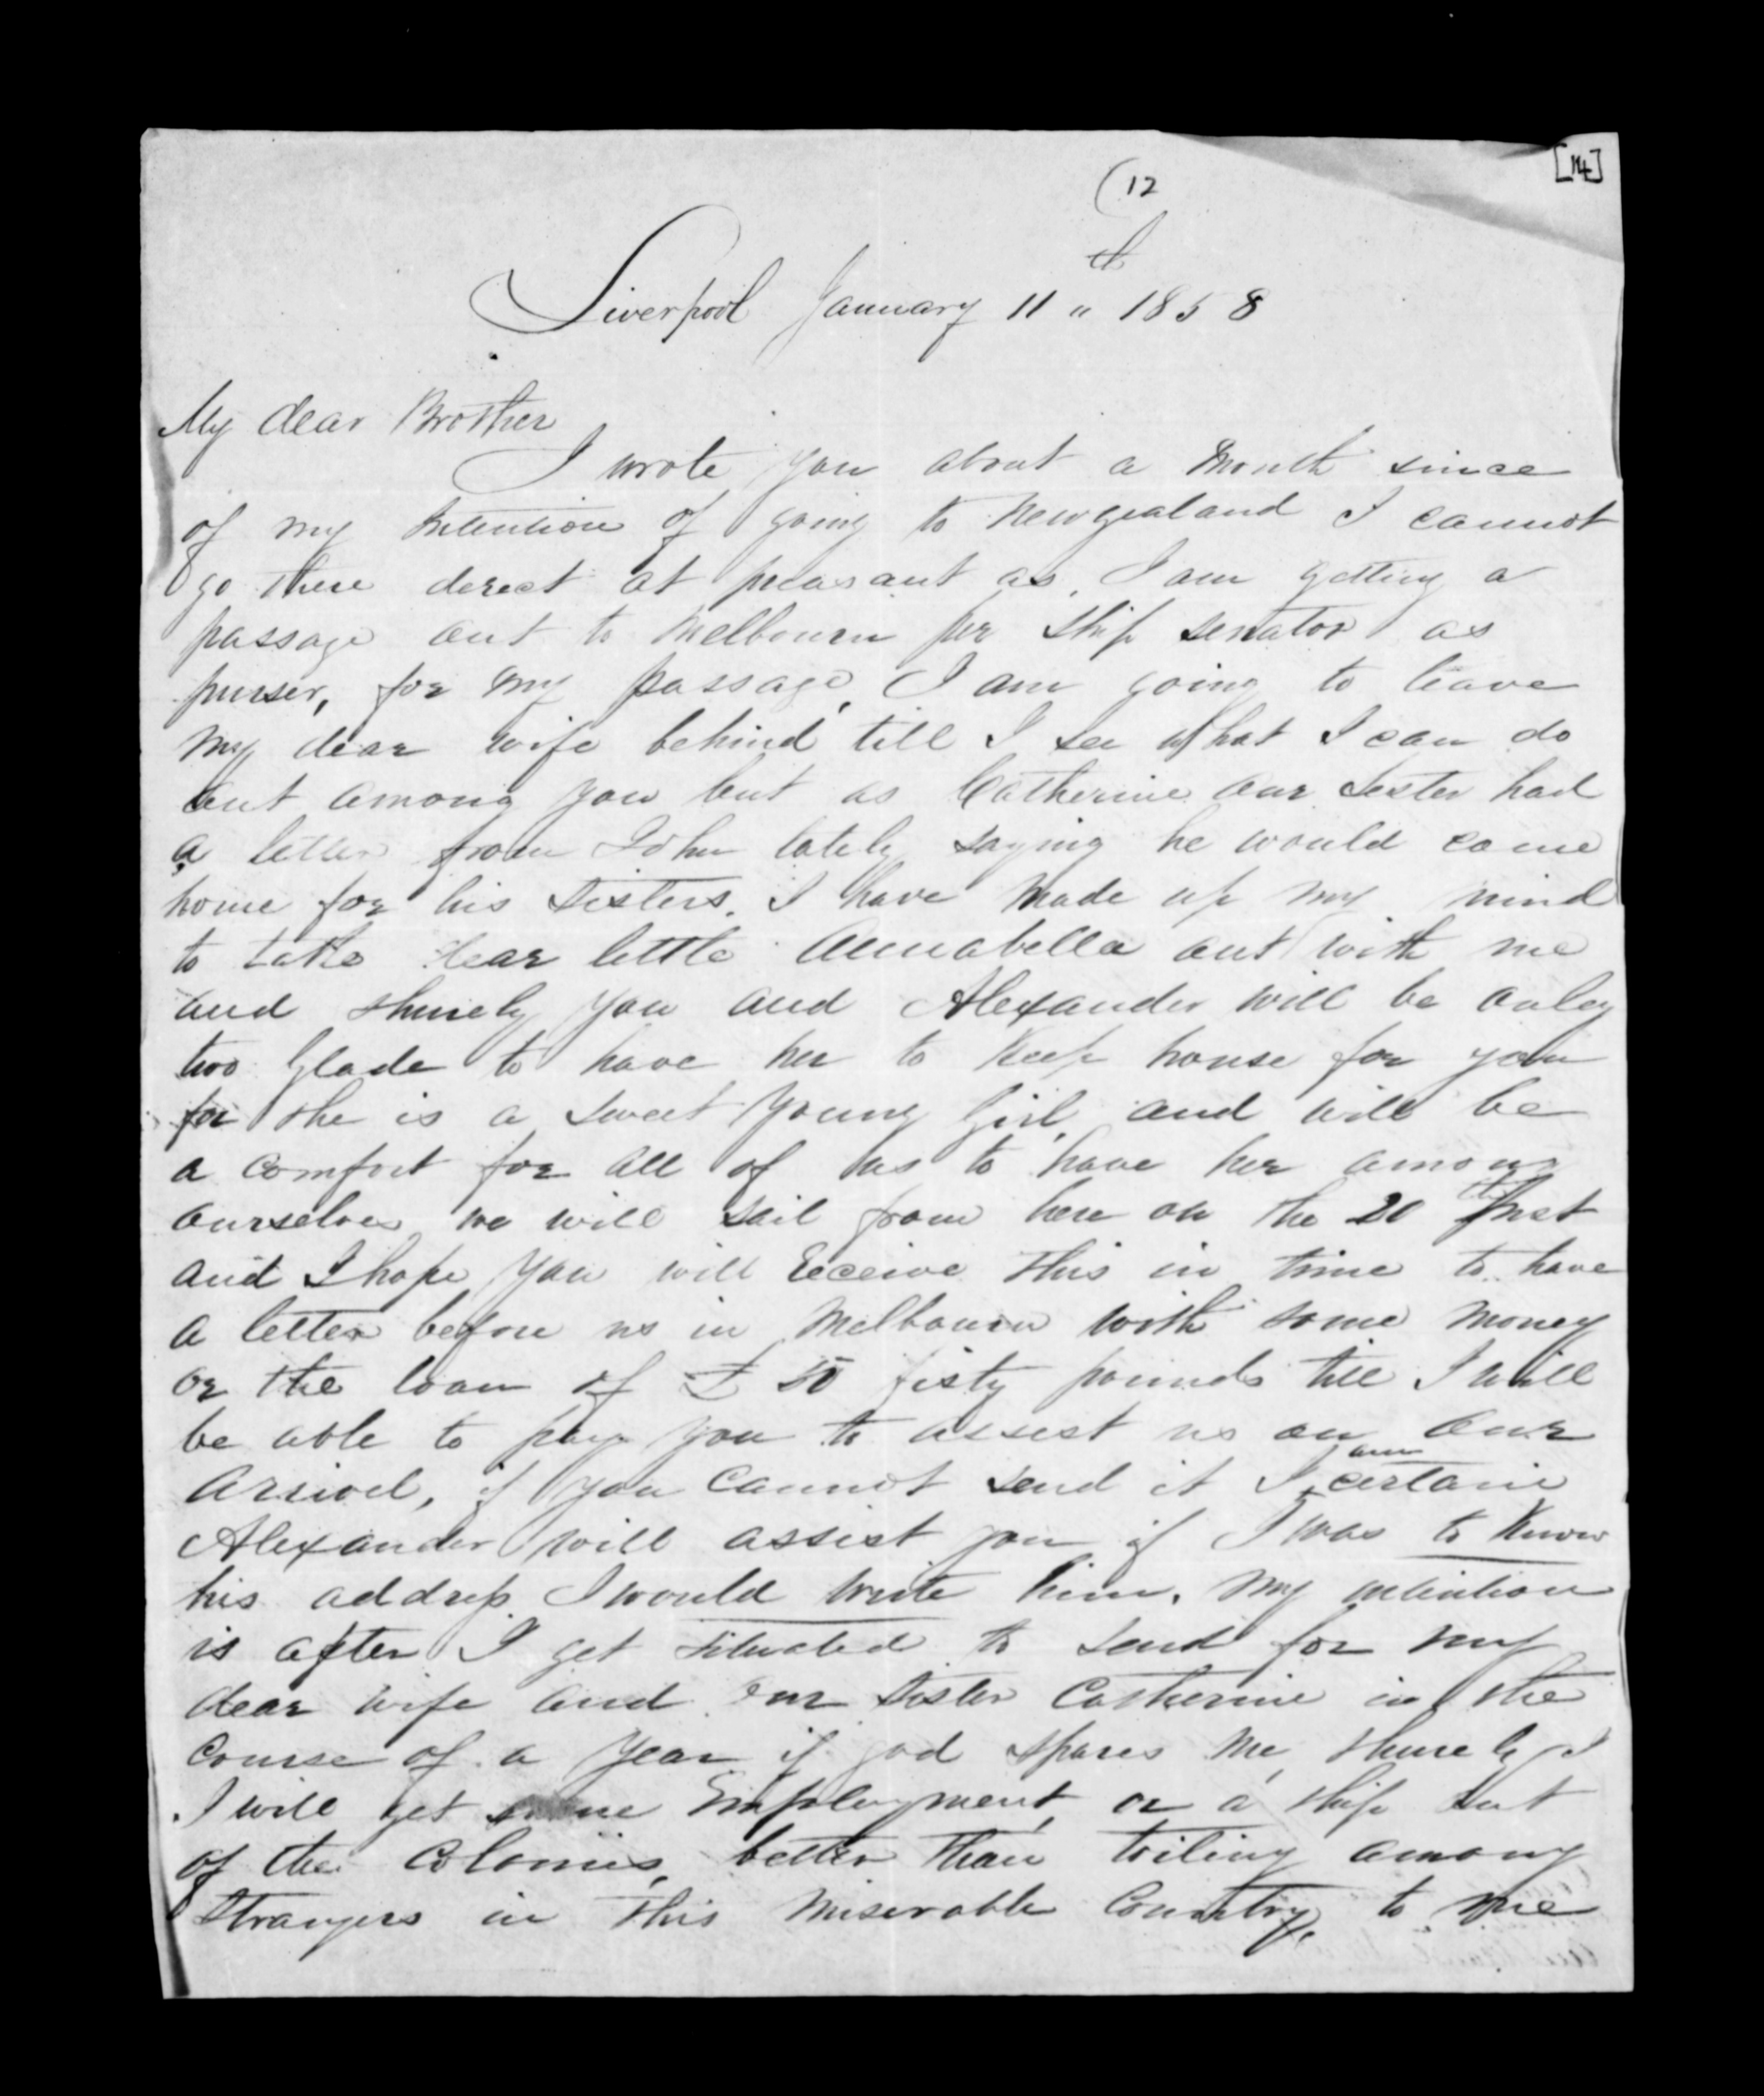 [14]
(12
Liverpool January 11th 1858
My dear Brother
I wrote you about a month since
of my intention of going to Newzealand I cannot
go there derect at preasant as I am getting a
passage out to Melbourn per ship Senator as
purser, for my passage, I am going to leave
my dear wife behind till I see what I can do
out among you but as Catherine our Sester had
a letter from John lately saying he would come
home for his Sisters. I have made up my mind
to take dear little Annabella out with me
and shurely you and Alexander will be only
two glade to have her to keep house for you
for she is a sweet young girl, and will be
a comfort for all of us to have her among
ourselves, we will sail from here on the 20th Inst
and I hope you will receive this in time to have
a letter before us in Melbourn with some money
or the loan of £50 fifty pounds till I will
be able to pay you to assest us on our
arrivel, if you cannot send it I am certain
Alexander will assist you if I was to know
his address I would write him. My intention
is after I get situated to send for my
dear wife and our sister Catherine in the
course of a year if god spares me, shurely I
I will get some Employment, or a ship out
of the Colonies, better than toiling among
strangers in this miserable Country, to me